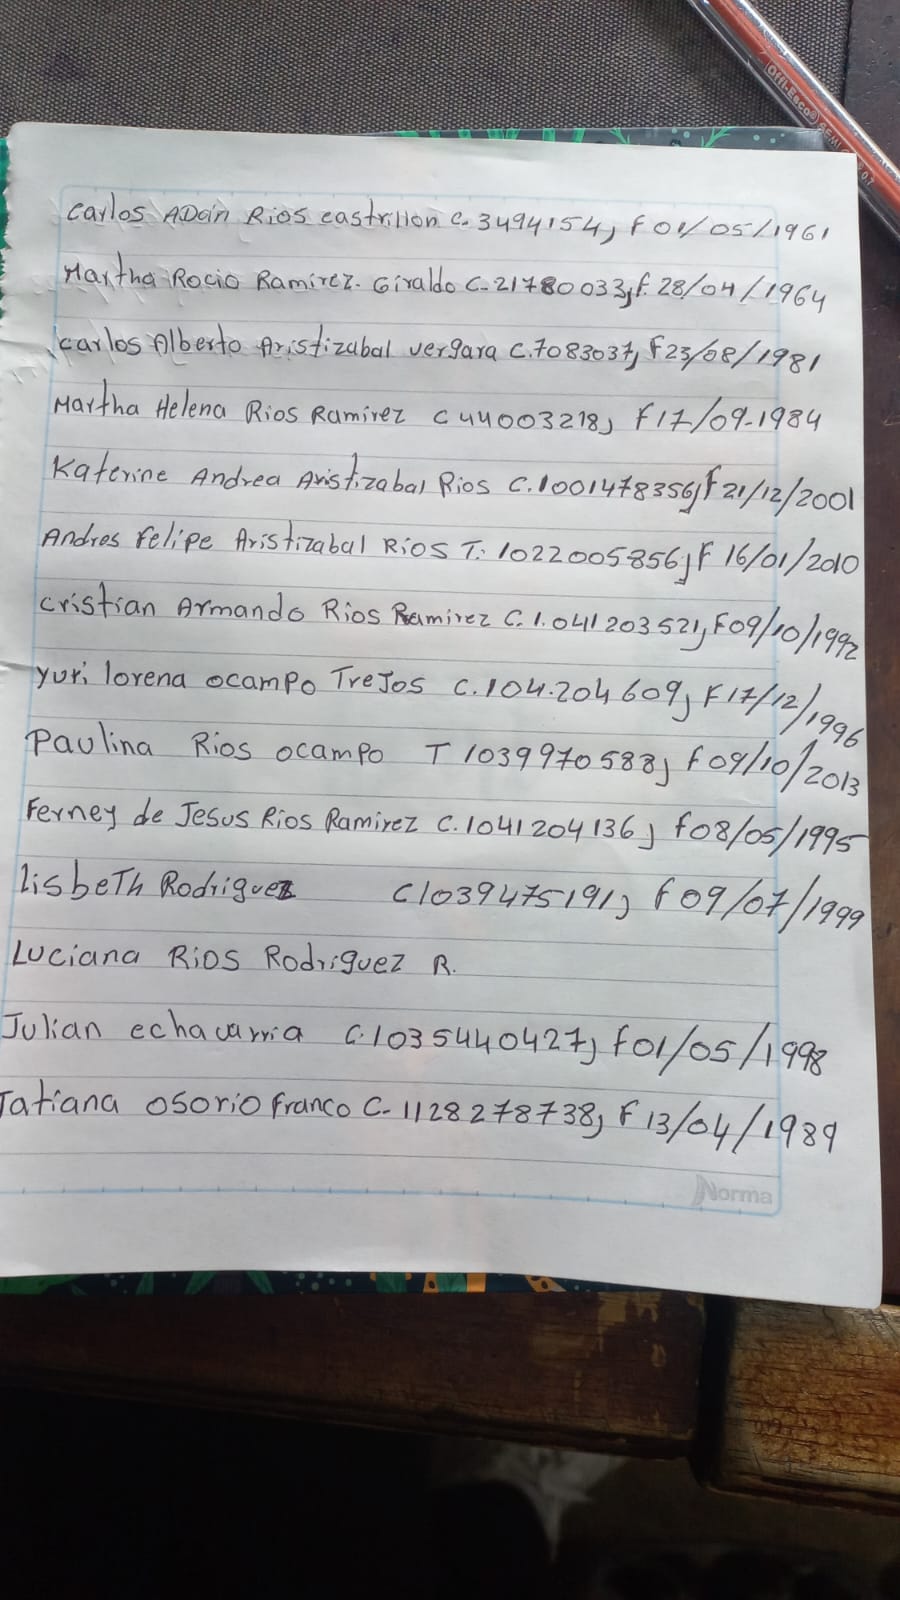 Offi-Esco® SEMI 0.7
Carlos ADain Rios castrillon C. 3494154, f 01/05/1961
Martha Rocio Ramirez. Giraldo C. 21780033, f. 28/04/1964
carlos Alberto Aristizabal vergara C. 7083037, f 23/08/1981
Martha Helena Rios Ramirez C 44003218, f 17/09-1984
Katerine Andrea Aristizabal Rios C. 1001478356, f 21/12/2001
Andres felipe Aristizabal Rios T: 1022005856, f 16/01/2010
cristian Armando Rios Ramirez C. 1.041203521, F09/10/1992
yuri lorena ocampo Trejos C. 104.204609, F 17/12/1996
Paulina Rios ocampo T 1039970588, f 09/10/2013
Ferney de Jesus Rios Ramirez C. 1041204136, f08/05/1995
lisbeth Rodriguez C1039475191, f 09/07/1999
Luciana Rios Rodriguez R.
Julian echavarria C. 1035440427, f01/05/1998
Tatiana osorio franco C. 1128278738, F 13/04/1989
Norma